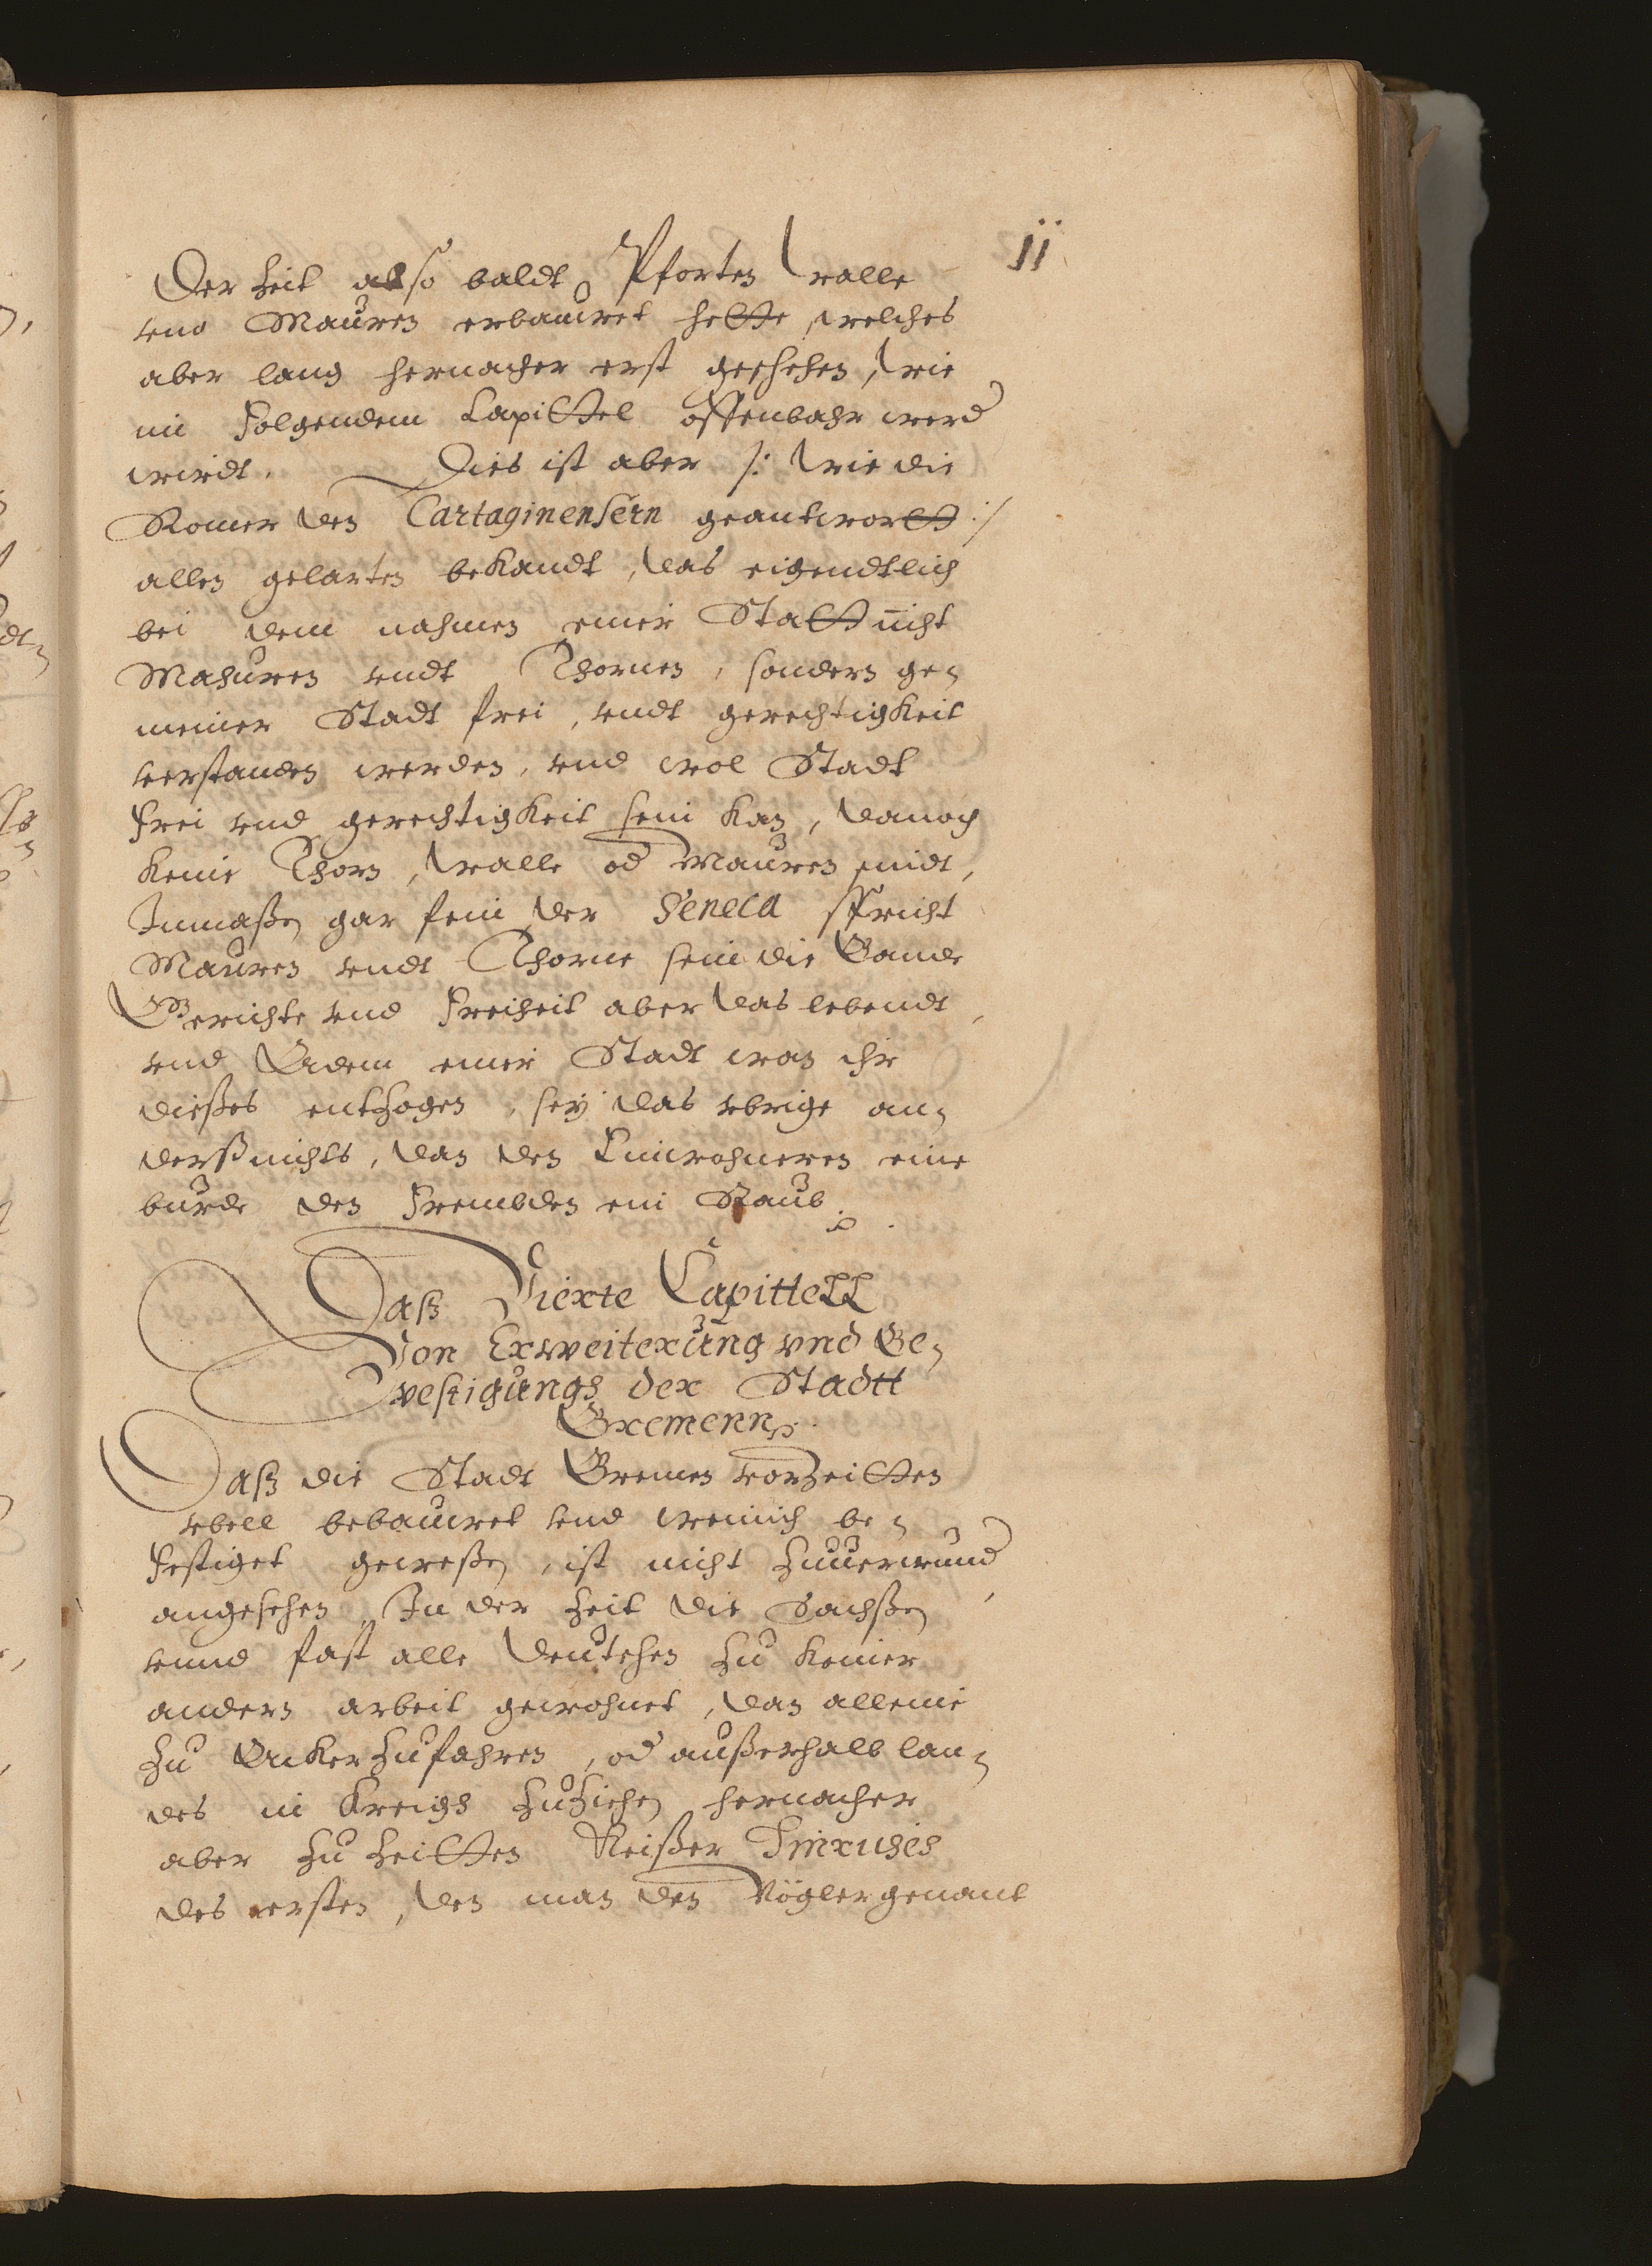 11
Der Zeit also baldt Pforten Walle
vnd Mauren erbauwet hette, welches
aber lang hernacher erst geschehen, wie
im Folgendem Capittel offenbahr werd
wirdt. Dies ist aber /: wie die
Romer den Cartaginensern geantwortt :/
allen gelarten bekandt, das eigendtlich
bei dem nahmen einer Statt nicht
Mahuren vndt Thornen, sondern ge„
meiner Stadt frei, vndt gerechtigkeit
verstanden werden, vnd wol Stadt
Frei vnd gerechtigkeit sein kan, da noch
keine Thorn, Walle od Mauren sindt,
Inmaßen gar fein der Seneca spricht
Mauren vndt Thorne sein die Bande
Gerichte vnd Freiheit aber das lebendt,
vnd Adem einer Stadt wan ihr
dießes entzogen, sey das vbrige an„
derß nichts, dan den Einwohneren eine
burde den Frembden ein Raub.
Daß Vierte Capittell
Von Erweiterung vnd Be„
vestigungh der Stadtt
Bremenn.
Daß die Stadt Bremen vorzeitten
vbell bebauwet vnd wenich be„
Festiget geweßen, ist nicht zuuerwund
angesehen, In der Zeit die Sachßen
vnnd fast alle Deutschen zu keiner
andern arbeit gewohnet, dan alleine
zu Acker zufahren, od außerhalb lan„
des in Kreigh zuziehen hernacher
aber zu Zeitten Keißer Hinricheß
des ersten, den man den Vögler genant